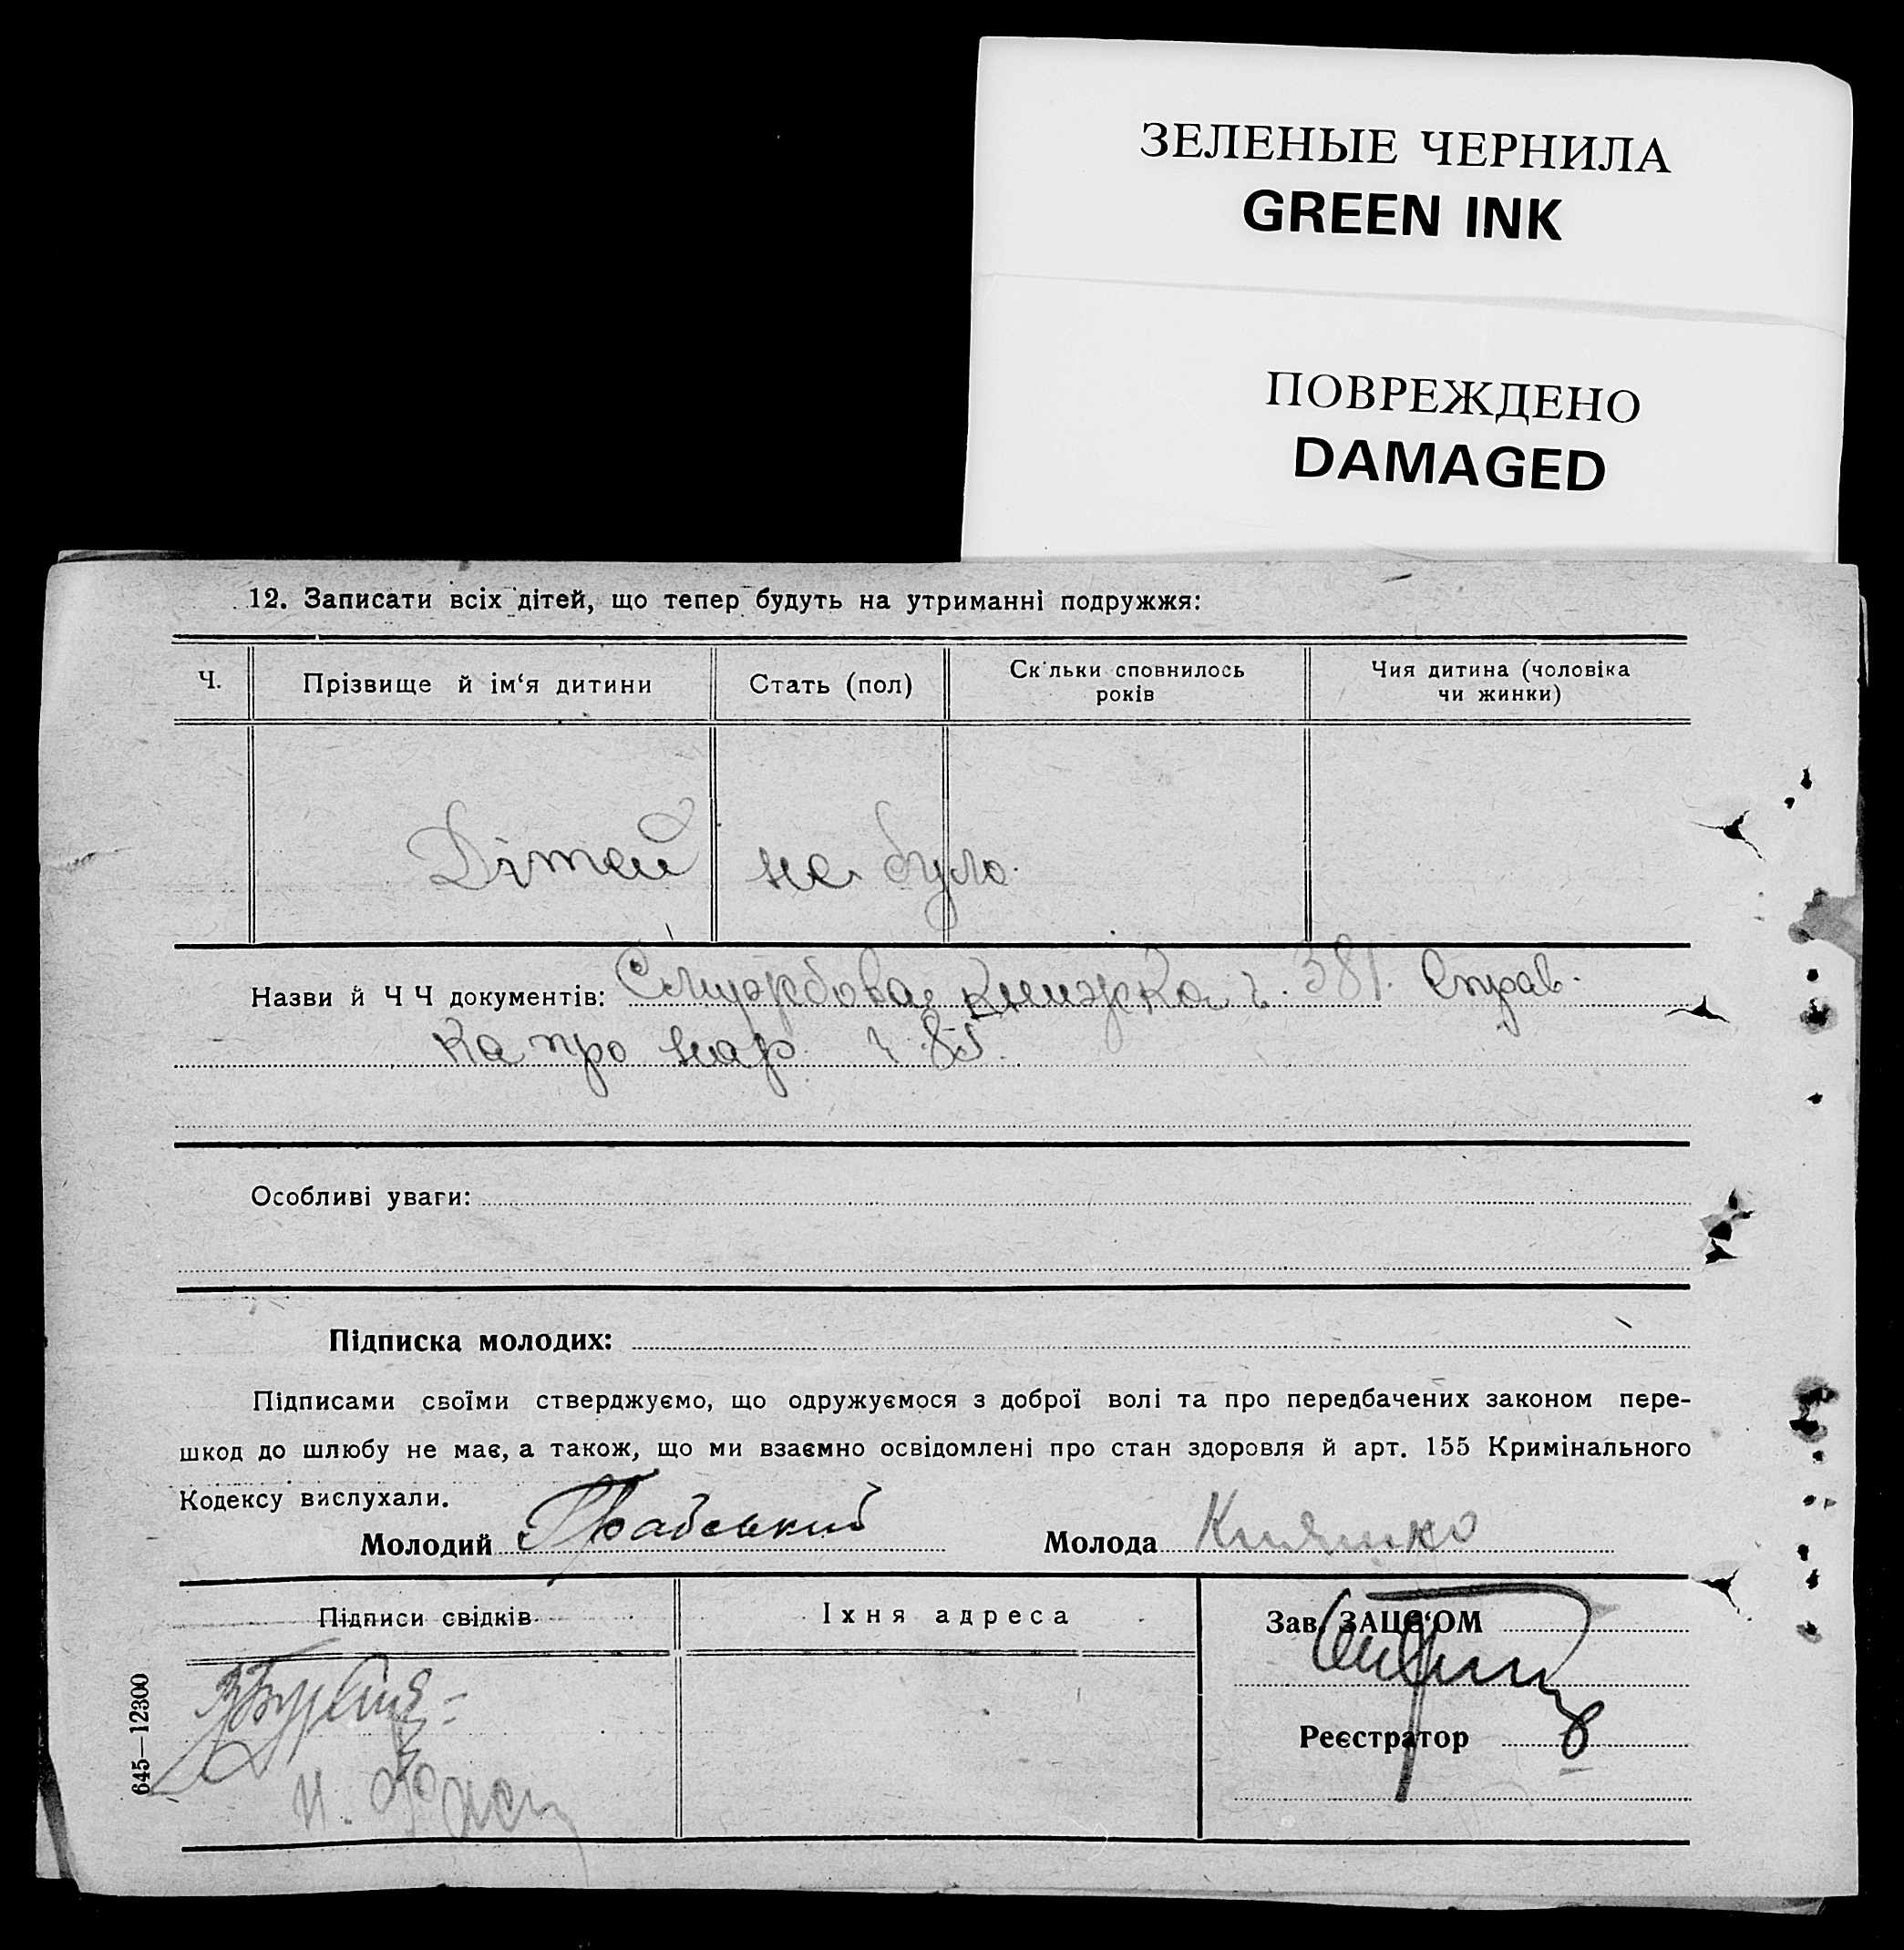 ЗЕЛЕНЫЕ ЧЕРНИЛА
GREEN INK
ПОВРЕЖДЕНО
DAMAGED
12. Записати всіх дітей, що тепер будуть на утриманні подружжя:
Ч.
Прізвище й ім‘я дитини
Стать (пол)
Ск льки сповнилось
років
Чия дитина (чоловіка
чи жинки)
Дітей не було.
Назви й ЧЧ документів: Службова книжка ч. 381. Справ-
ка про нар. ч 85.
Особливі уваги:
Підписка молодих:
Підписами своїми стверджуємо, що одружуємося з доброї волі та про передбачених законом пере-
шкод до шлюбу не має, а також, що ми взаємно освідомлені про стан здоровля й арт. 155 Кримінального
Кодексу вислухали.
Молодий
Молода Книшко
Підписи свідків
Іхня адреса
Зав. ЗАЦС‘ОМ
Реєстратор
645—12300